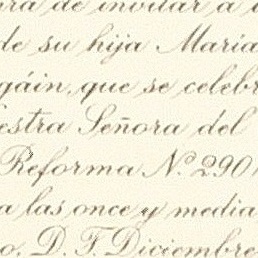 ra de invitar a
de su hija María
gáin, que se celebr
estra Señora del
Reforma N.º 290
a las once y media
o, D. F. Diciembre